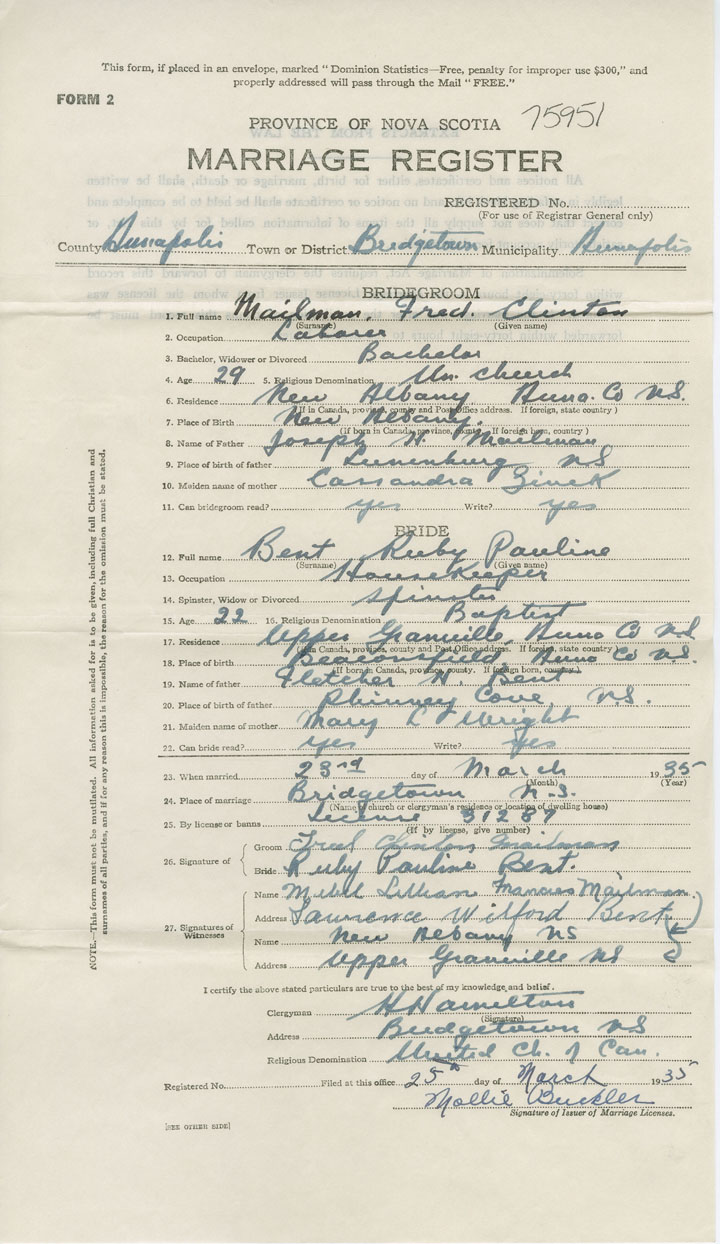 This form, if placed in an envelope, marked "Dominion Statistics—Free, penalty for improper use $300," and
properly addressed will pass through the Mail "FREE."
FORM 2
PROVINCE OF NOVA SCOTIA 75951
MARRIAGE REGISTER
REGISTERED No.
(For use of Registrar General only)
County Annapolis Town or District Bridgetown Municipality Annapolis
BRIDEGROOM
1. Full name Mailman, Fred. Clinton
(Surname) (Given name)
2. Occupation Laborer
3. Bachelor, Widower or Divorced Bachelor
4. Age 29 5. Religious Denomination Un. Church
6. Residence New Albany Anna. Co N.S.
(If in Canada, province, county and Post Office address. If foreign, state country)
7. Place of Birth New Albany.
(If born in Canada, province, county. If foreign born, country)
8. Name of Father Joseph H. Mailman
9. Place of birth of father Lunenburg NS
10. Maiden name of mother Cassandra Zinck
11. Can bridegroom read? yes Write? yes
BRIDE
12. Full name Bent Ruby Pauline
(Surname) (Given name)
13. Occupation Housekeeper
14. Spinster, Widow or Divorced Spinster
15. Age 22 16. Religious Denomination Baptist
17. Residence Upper Granville, Anna Co N.S
(If in Canada, province, county and Post Office address. If foreign, state country)
18. Place of birth Beaconsfield, Anna Co N.S.
(If born in Canada, province, county. If foreign born, country)
19. Name of father Fletcher H. Bent
20. Place of birth of father Phinney Cove N.S.
21. Maiden name of mother Mary L Wright
22. Can bride read? yes Write? yes
23. When married 23rd day of March 1935
(Month) (Year)
24. Place of marriage Bridgetown N.S.
(Name of church or clergyman's residence or location of dwelling house)
25. By license or banns License 31287
(If by license, give number)
26. Signature of Groom Fred Clinton Mailman
Bride Ruby Pauline Bent.
27. Signatures of Witnesses
Name Lillian Frances Mailman.
Address Laurence Wilford Bent
Name New Albany NS
Address Upper Granville NS
I certify the above stated particulars are true to the best of my knowledge and belief.
Clergyman H Hamilton
(Signature)
Address Bridgetown NS
Religious Denomination United Ch. of Can.
Registered No. Filed at this office 25th day of March 1935
Mollie Buckler
Signature of Issuer of Marriage Licenses.
[SEE OTHER SIDE]
NOTE.—This form must not be mutilated. All information asked for is to be given, including full Christian and
surnames of all parties, and if for any reason this is impossible, the reason for the omission must be stated.